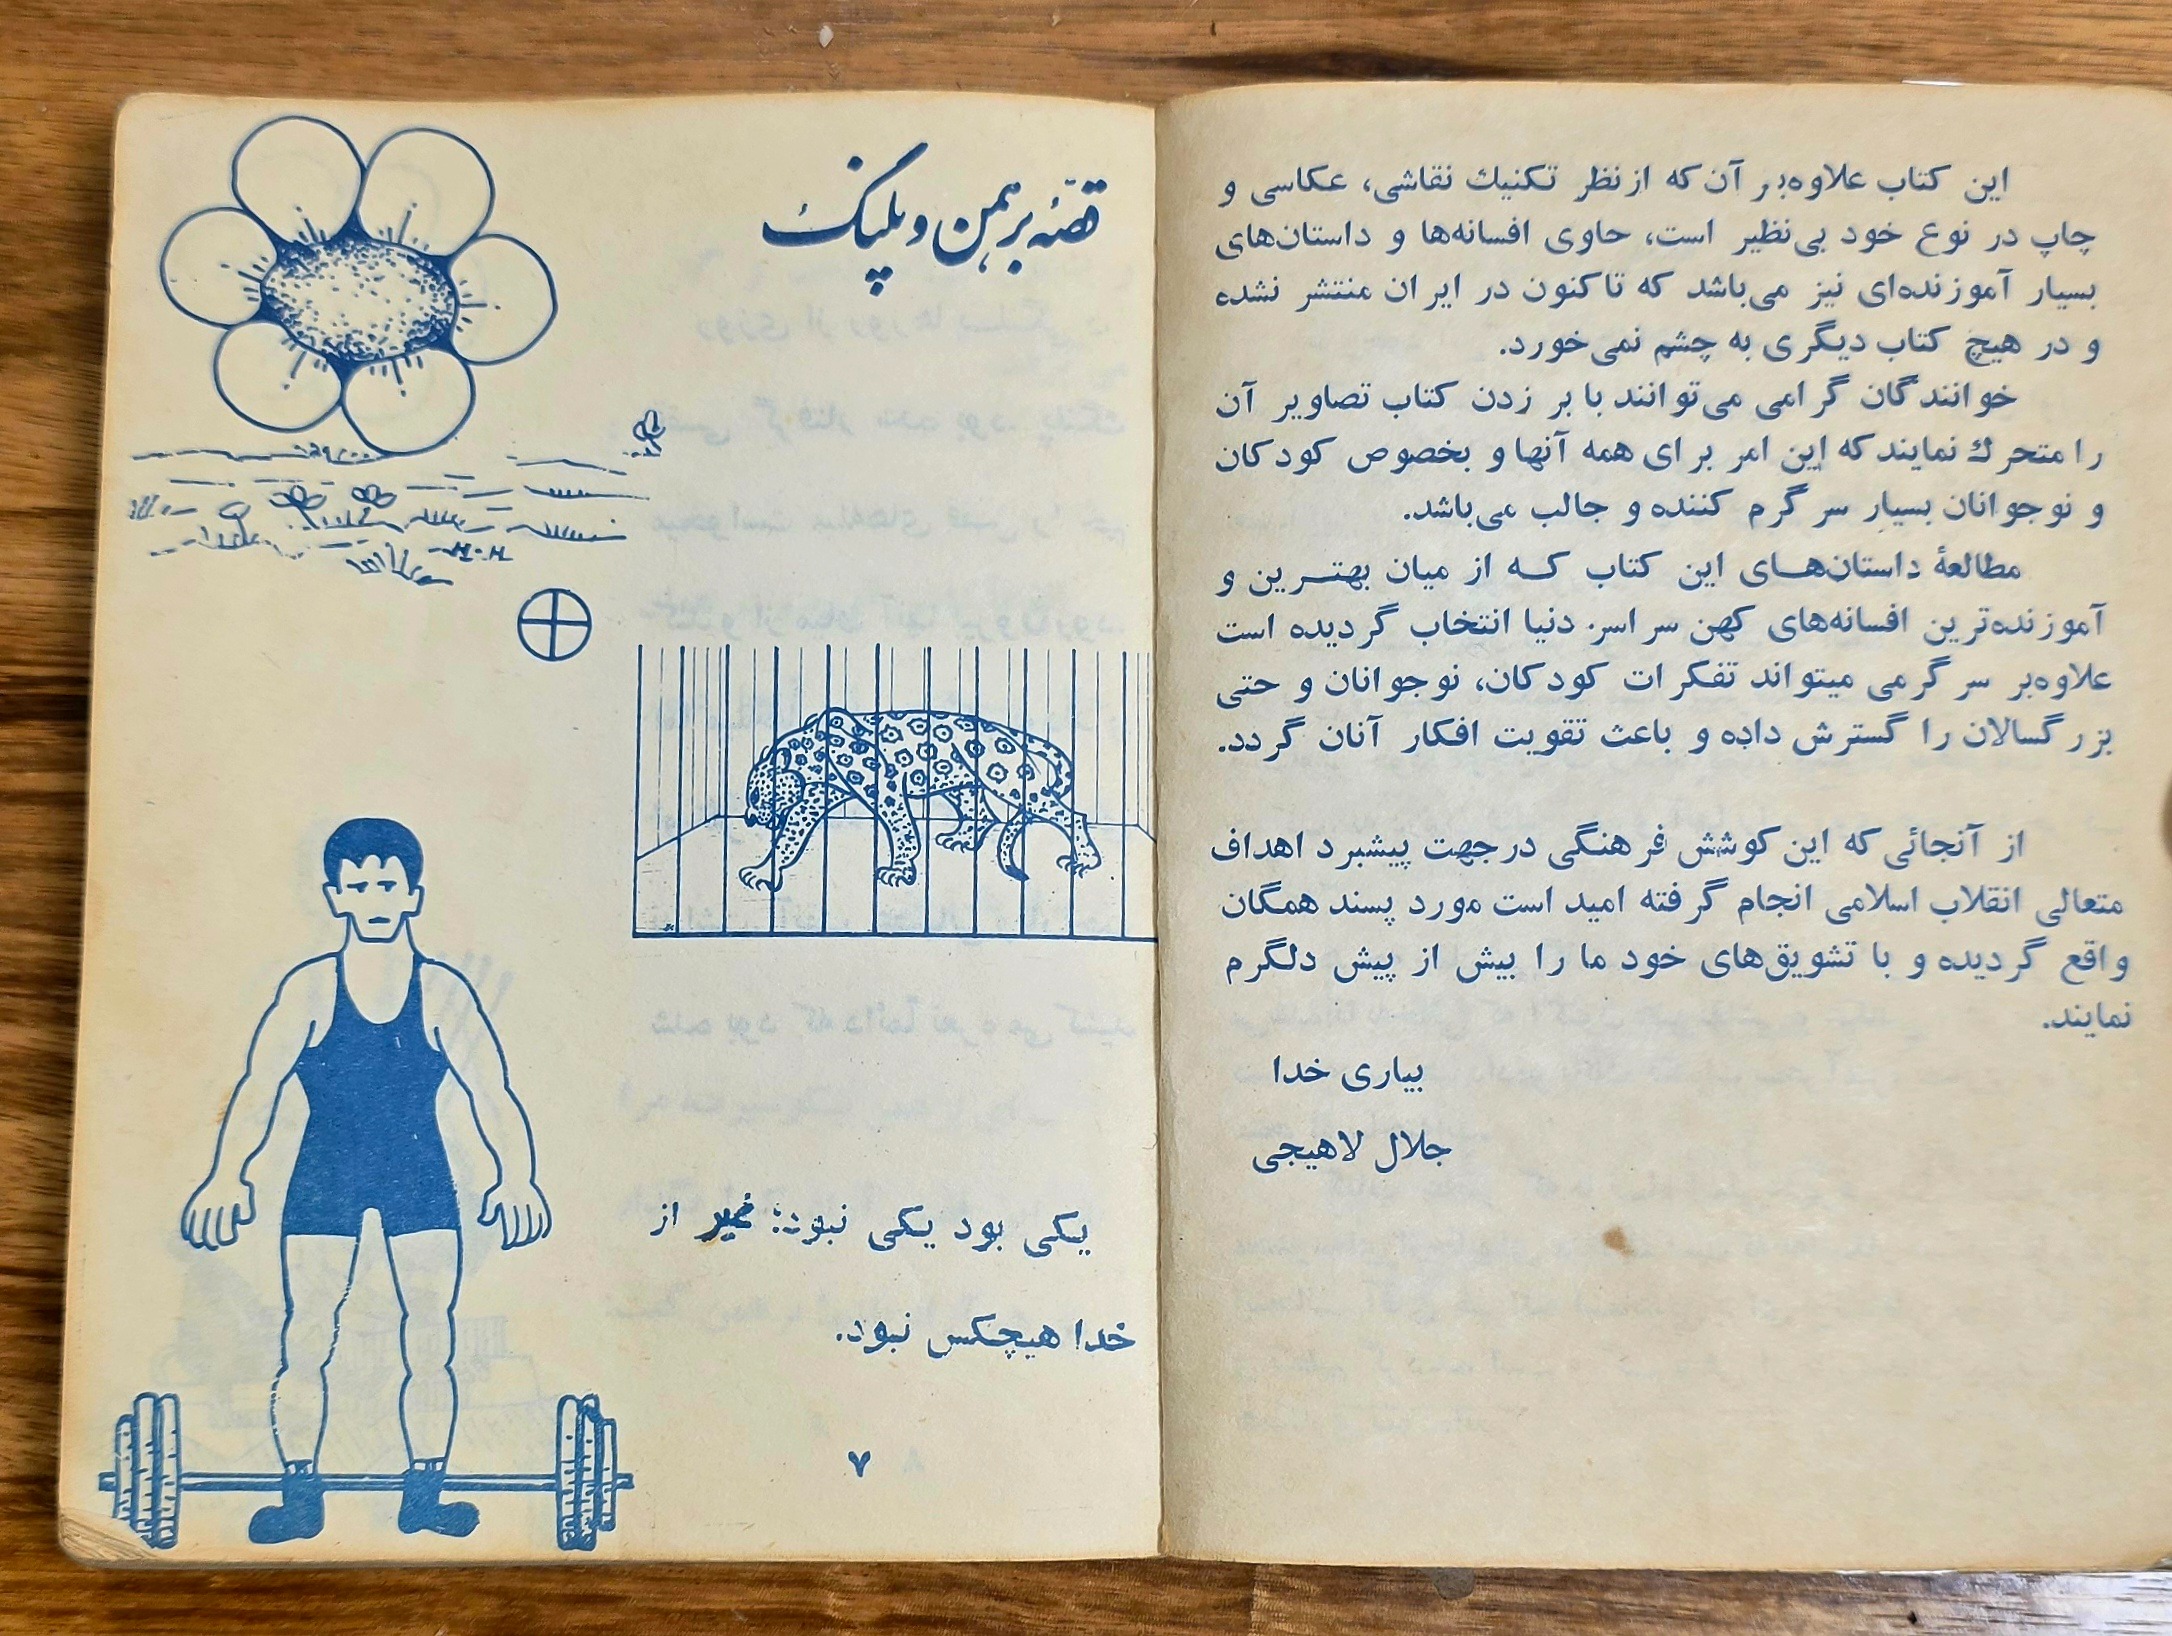 این کتاب علاوه‌بر آن‌که از نظر تکنیك نقاشی، عکاسی و
چاپ در نوع خود بی‌نظیر است، حاوی افسانه‌ها و داستان‌های
بسیار آموزنده‌ای نیز می‌باشد که تاکنون در ایران منتشر نشده
و در هیچ کتاب دیگری به چشم نمی‌خورد.
خوانندگان گرامی می‌توانند با بر زدن کتاب تصاویر آن
را متحرك نمایند که این امر برای همه آنها و بخصوص کودکان
و نوجوانان بسیار سرگرم کننده و جالب می‌باشد.
مطالعهٔ داستان‌های این کتاب که از میان بهترین و
آموزنده‌ترین افسانه‌های کهن سراسر دنیا انتخاب گردیده است
علاوه‌بر سرگرمی میتواند تفکرات کودکان، نوجوانان و حتی
بزرگسالان را گسترش داده و باعث تقویت افکار آنان گردد.
از آنجائی که این کوشش فرهنگی در جهت پیشبرد اهداف
متعالی انقلاب اسلامی انجام گرفته امید است مورد پسند همگان
واقع گردیده و با تشویق‌های خود ما را بیش از پیش دلگرم
نمایند.
بیاری خدا
جلال لاهیجی
قصّهٔ برهمن و پلنگ
H.H
یکی بود یکی نبود؛ غیر از
خدا هیچکس نبود.
۷